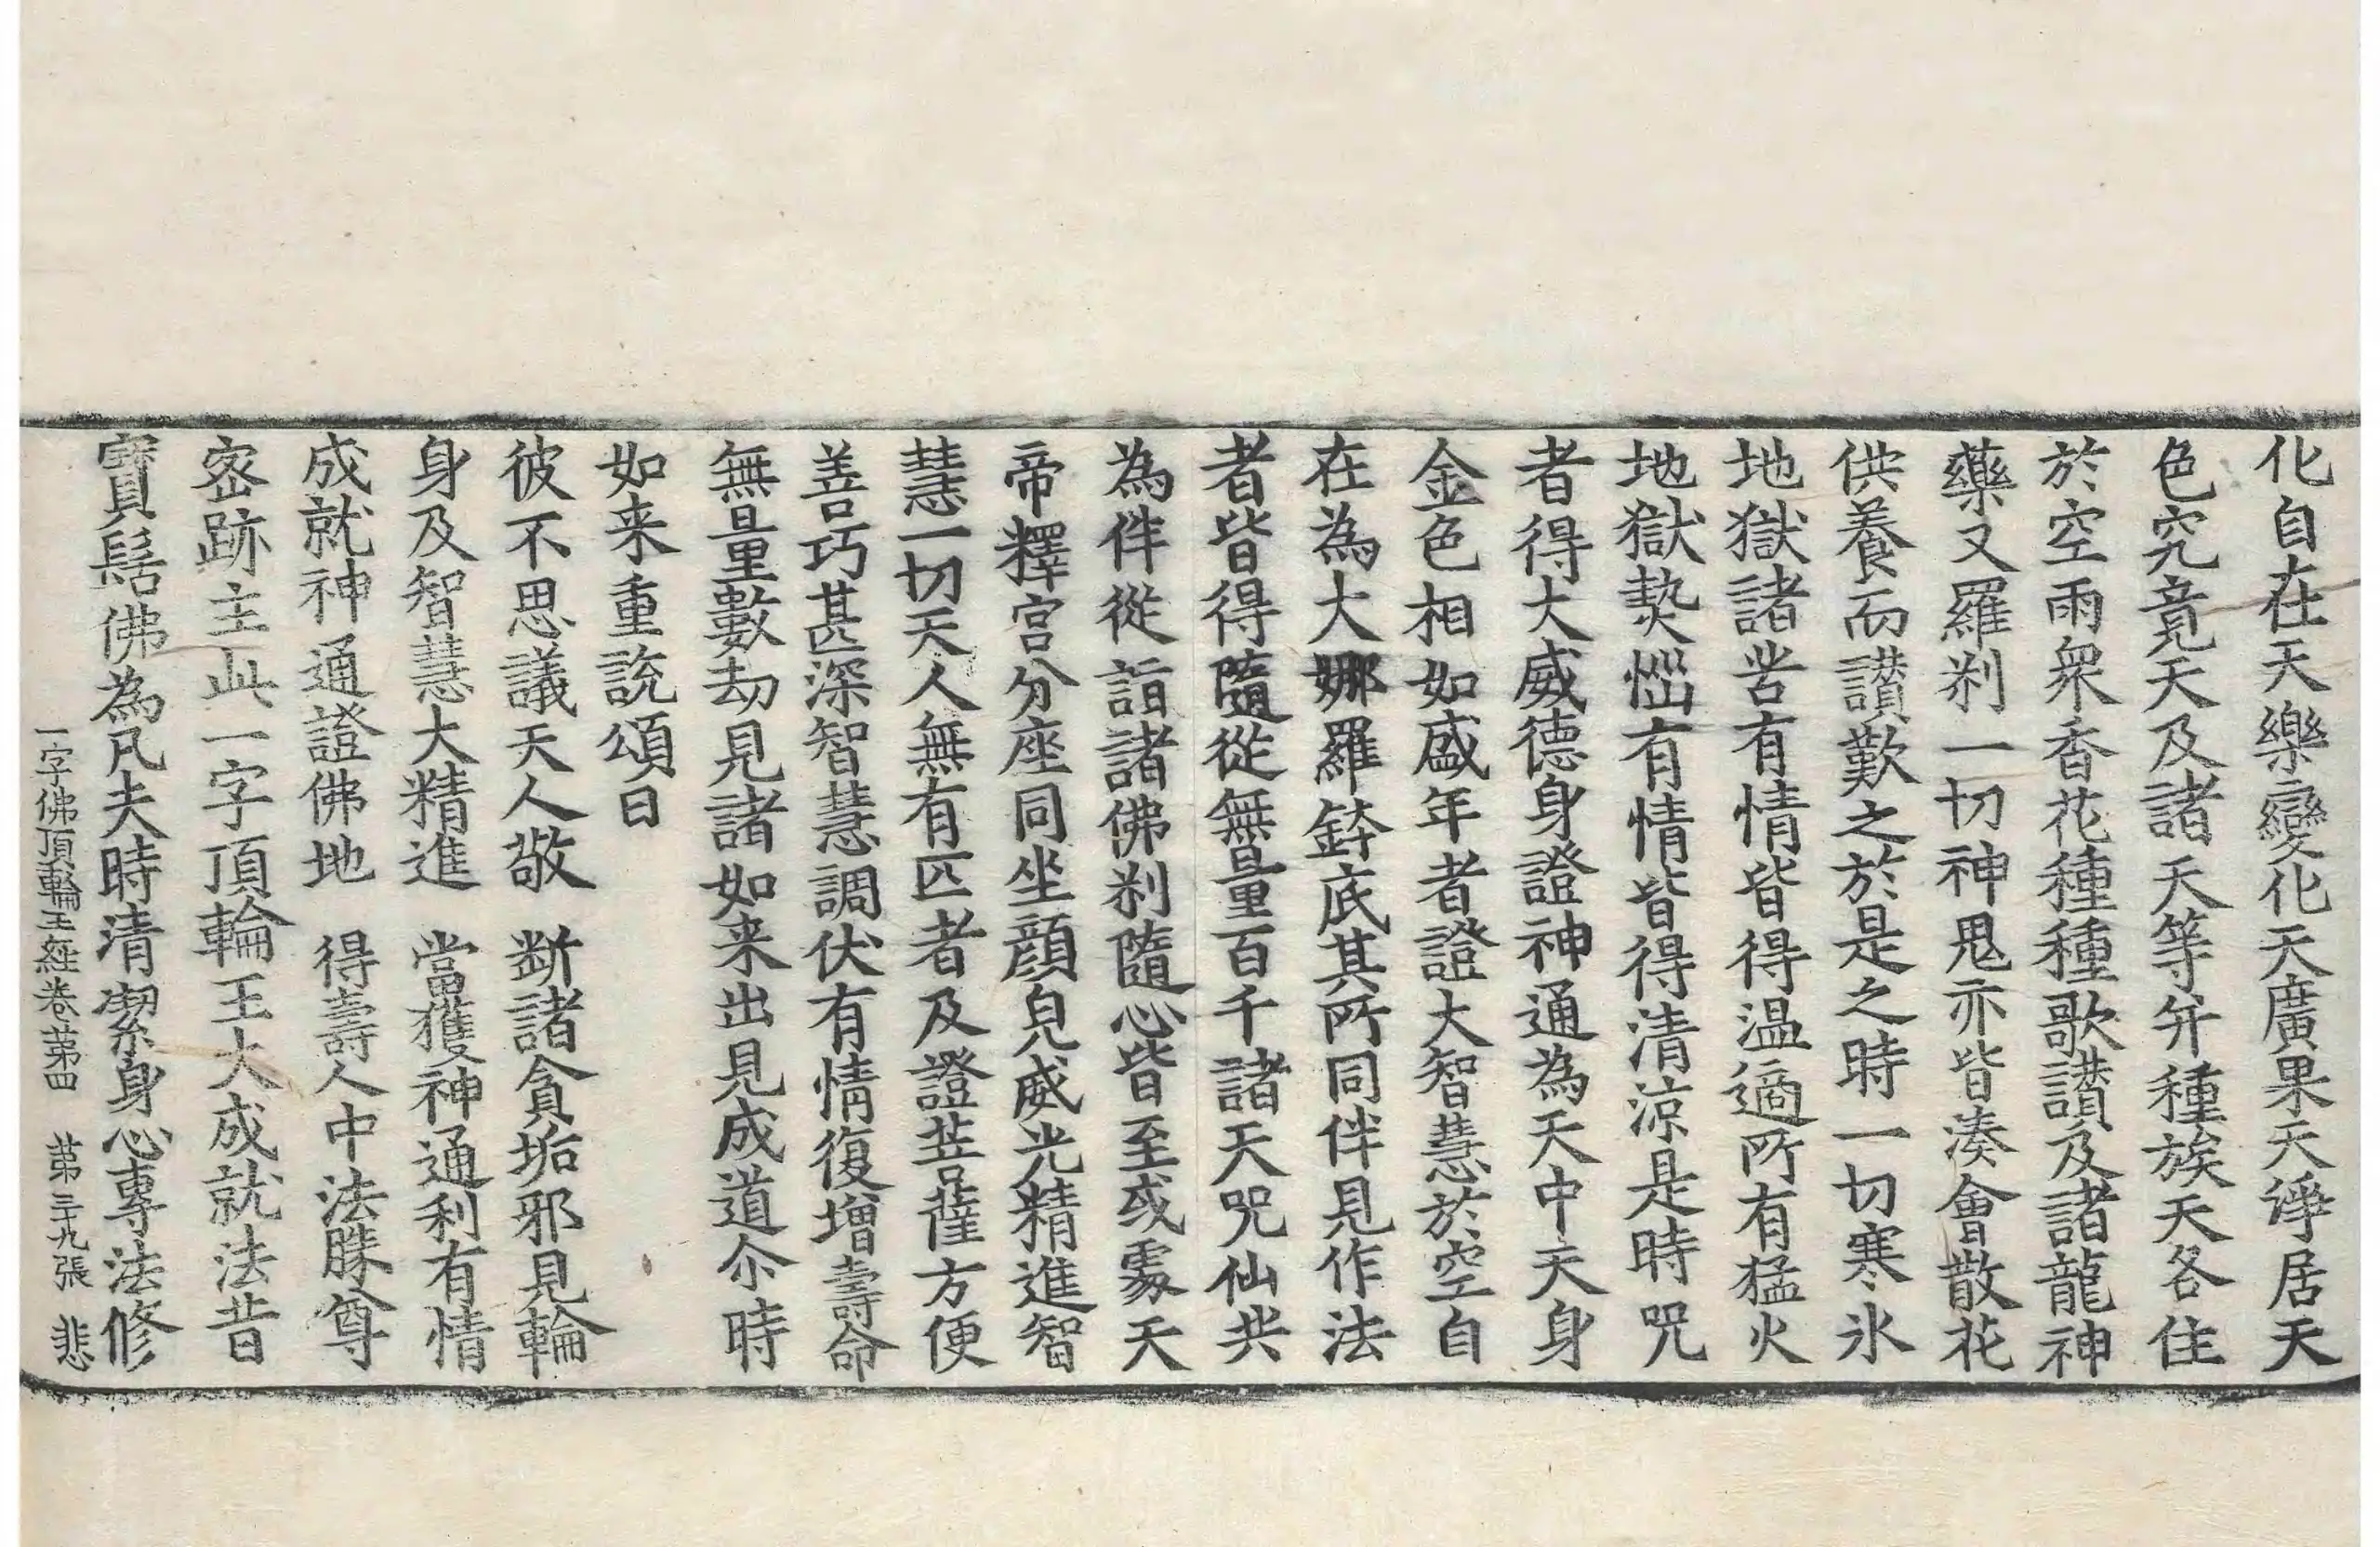 化自在天樂變化天廣果天淨居天
色究竟天及諸天等并種族天各住
於空雨衆香花種種歌讃及諸龍神
藥叉羅刹一切神鬼亦皆湊會散花
供養而讃歎之於是之時一切寒氷
地獄諸苦有情皆得温適所有猛火
地獄𤍠惱有情皆得清涼是時咒
者得大威德身證神通為天中天身
金色相如盛年者證大智慧於空自
在為大娜羅鉢底其所同伴見作法
者皆得隨從無量百千諸天咒仙共
為伴從詣諸佛刹隨心皆至或處天
帝釋宮分座同坐顔皃威光精進智
慧一切天人無有匹者及證菩薩方便
善巧甚深智慧調伏有情復增壽命
無量數劫見諸如来出見成道尒時
如来重說頌曰
彼不思議天人敬　斷諸貪垢邪見輪
身及智慧大精進　當獲神通利有情
成就神通證佛地　得壽人中法勝尊
宻跡主此一字頂輪王大成就法昔
寶髻佛為凡夫時清潔身心專法修
一字佛頂輪王經卷第四　第三九張　悲